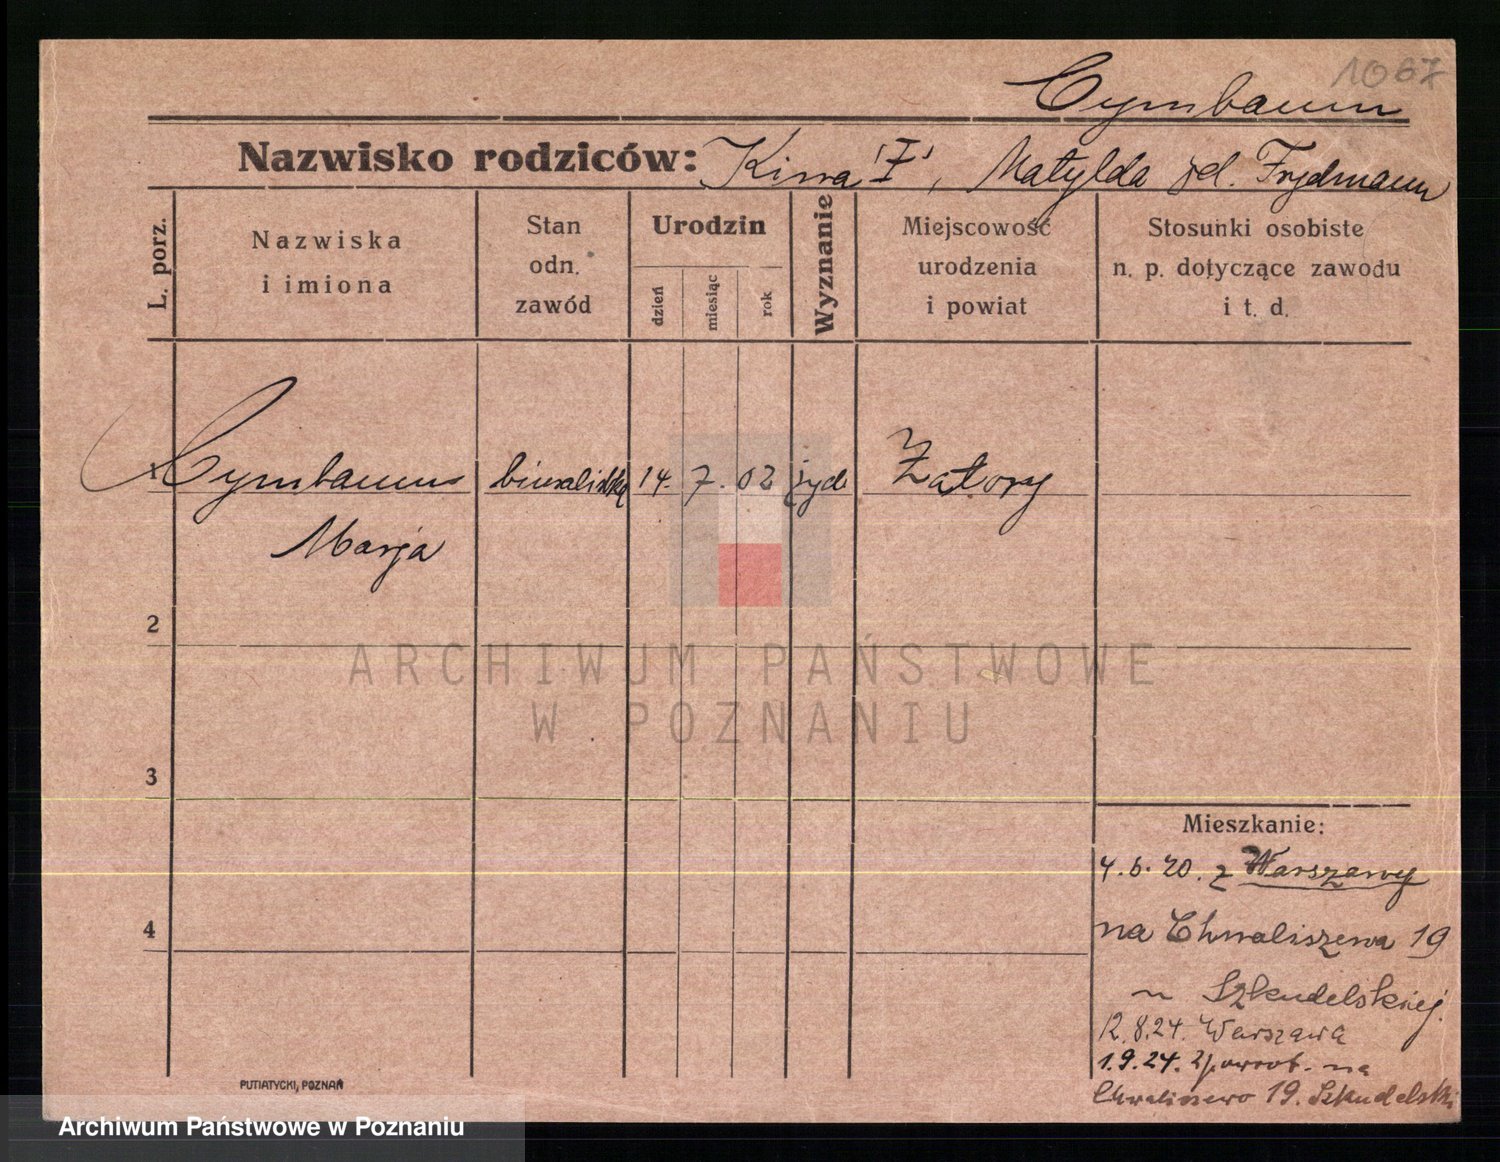 1067
Cymbaum
Nazwisko rodziców: Kiwa "I", Matylda Frydmann
L. porz.
Nazwiska
i imiona
Stan
odn.
zawód
Urodzin
dzień
miesiąc
rok
Wyznanie
Miejscowość
urodzenia
i powiat
Stosunki osobiste
n. p. dotyczące zawodu
i t. d.
1 Cymbaum biuralistka 14. 7. 02 żyd Zatory
Marja
2
ARCHIWUM PAŃSTWOWE
W POZNANIU
3
Mieszkanie:
4.6.20. z Warszawy
4
na Chwaliszewa 19
u Szkudelskiej.
12.8.24. Warszawa
1.9.24. zpowrot. na
Chwaliszewo 19. Szkudelski
PUTIATYCKI, POZNAŃ
Archiwum Państwowe w Poznaniu